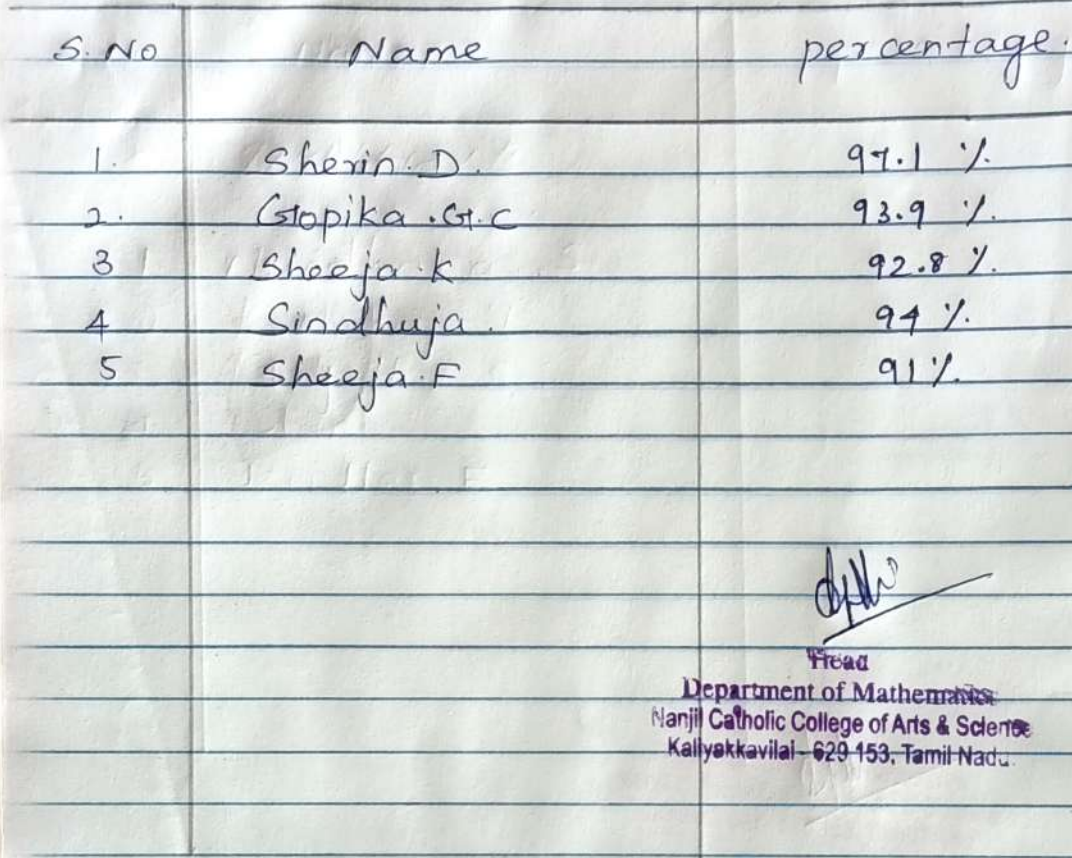 S. No Name percentage.
1. Sherin. D. 97.1 %.
2. Gopika .G. C 93.9 %.
3 Sheeja . K 92.8 %.
4 Sindhuja. 94 %.
5 Sheeja . F 91 %.
Head
Department of Mathematics
Nanjil Catholic College of Arts & Science
Kaliyakkavilai - 629 153, Tamil Nadu.